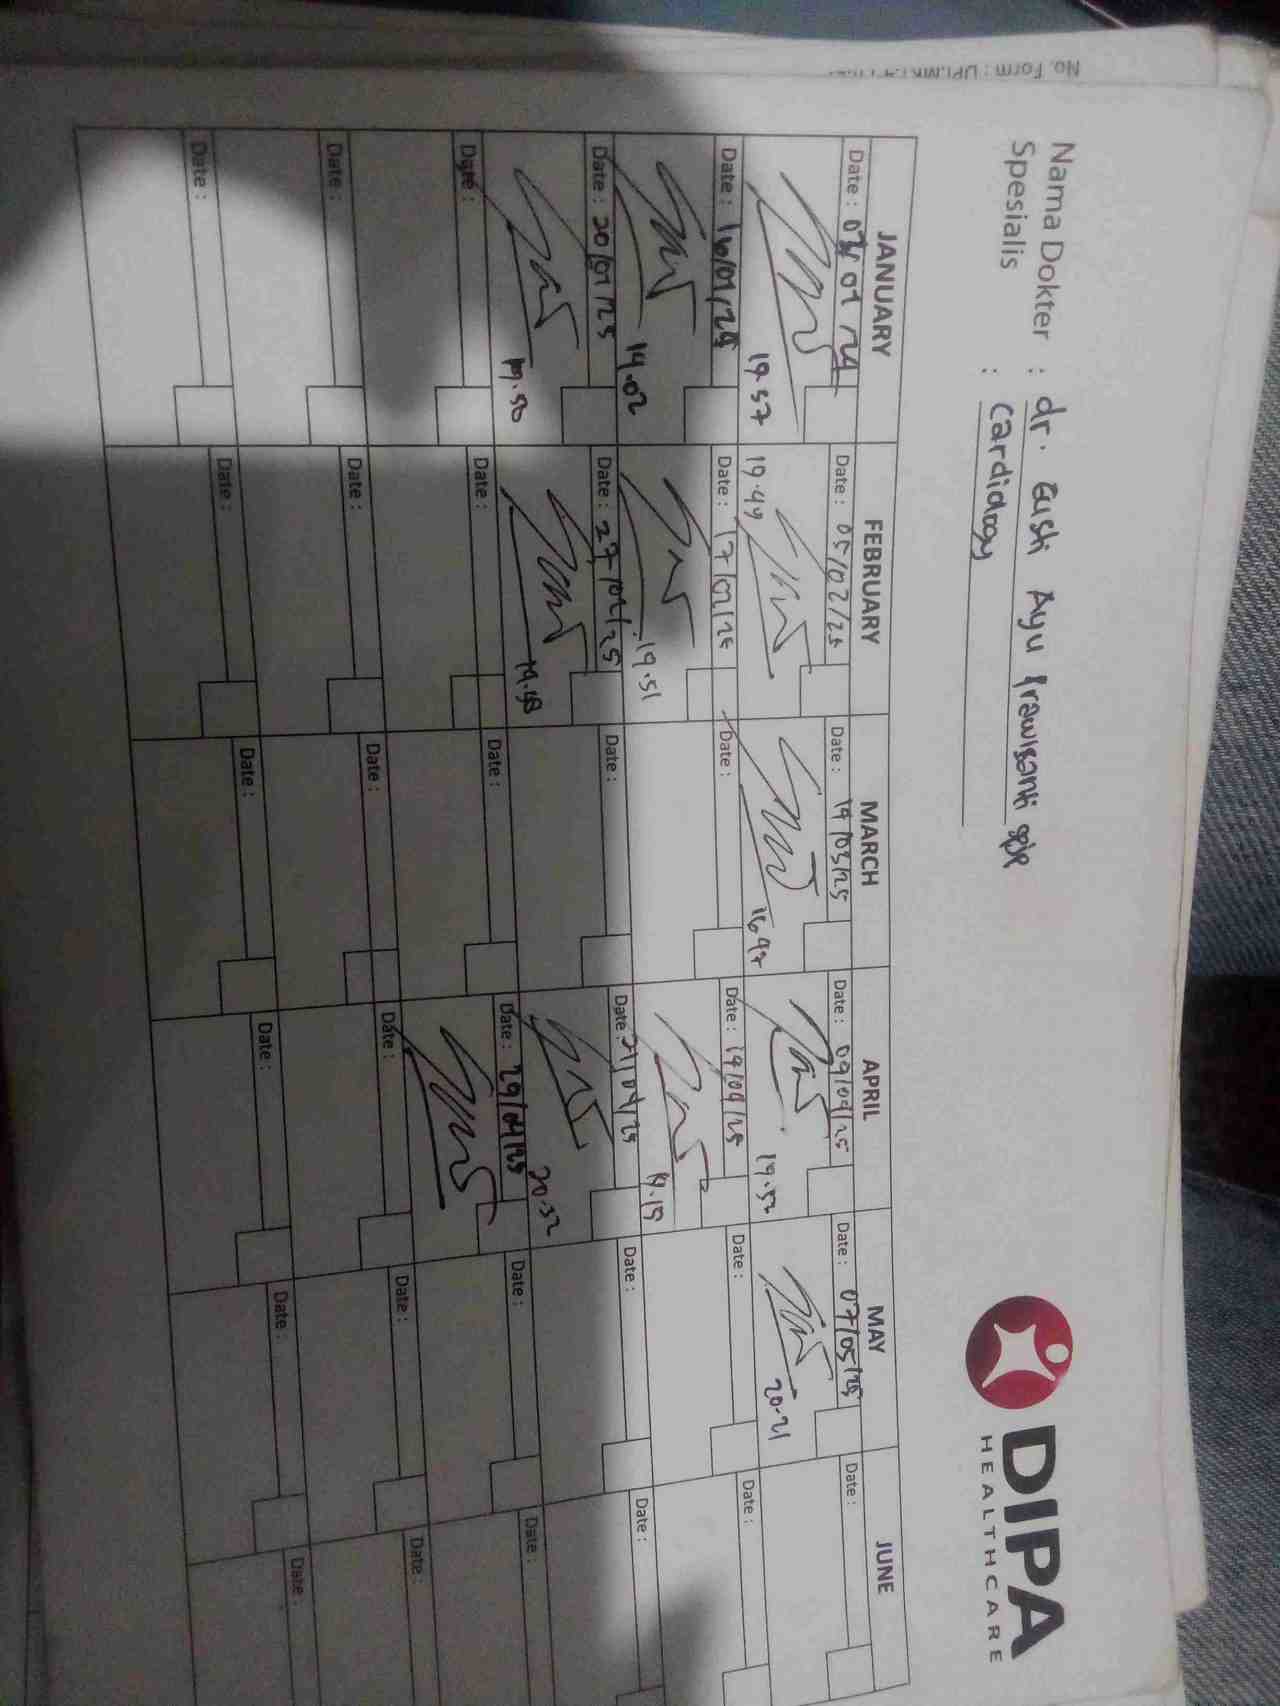 Nama Dokter : dr. Gusti Ayu Prawisanti SpJP
Spesialis : Cardiology
DIPA
HEALTHCARE
JANUARY FEBRUARY MARCH APRIL MAY JUNE
Date : Date : 05/02/25 Date : 19/03/25 Date : 09/04/25 Date : 07/05/25 Date :
19.37 19.49 19.52 20.21
Date : 16/01/25 Date : 17/02/25 Date : Date : 19/04/25 Date : Date :
19.02 19.51 19.19
Date : 20/01/25 Date : 27/02/25 Date : Date : 21/04/25 Date : Date :
19.50 19.48 20.32
Date : Date : Date : Date : 29/04/25 Date : Date :
Date : Date : Date : Date : Date : Date :
Date : Date : Date : Date : Date : Date :
No. Form :